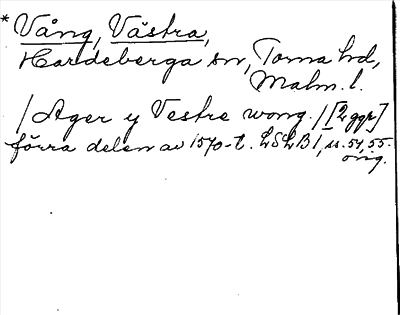 * Vång, Västra,
Hardeberga sn, Torna hd,
Malm. l.
/ Ager y Vestre wong. / [2 ggr]
förra delen av 1570-t. LSLB 1, s. 54, 55.
orig.